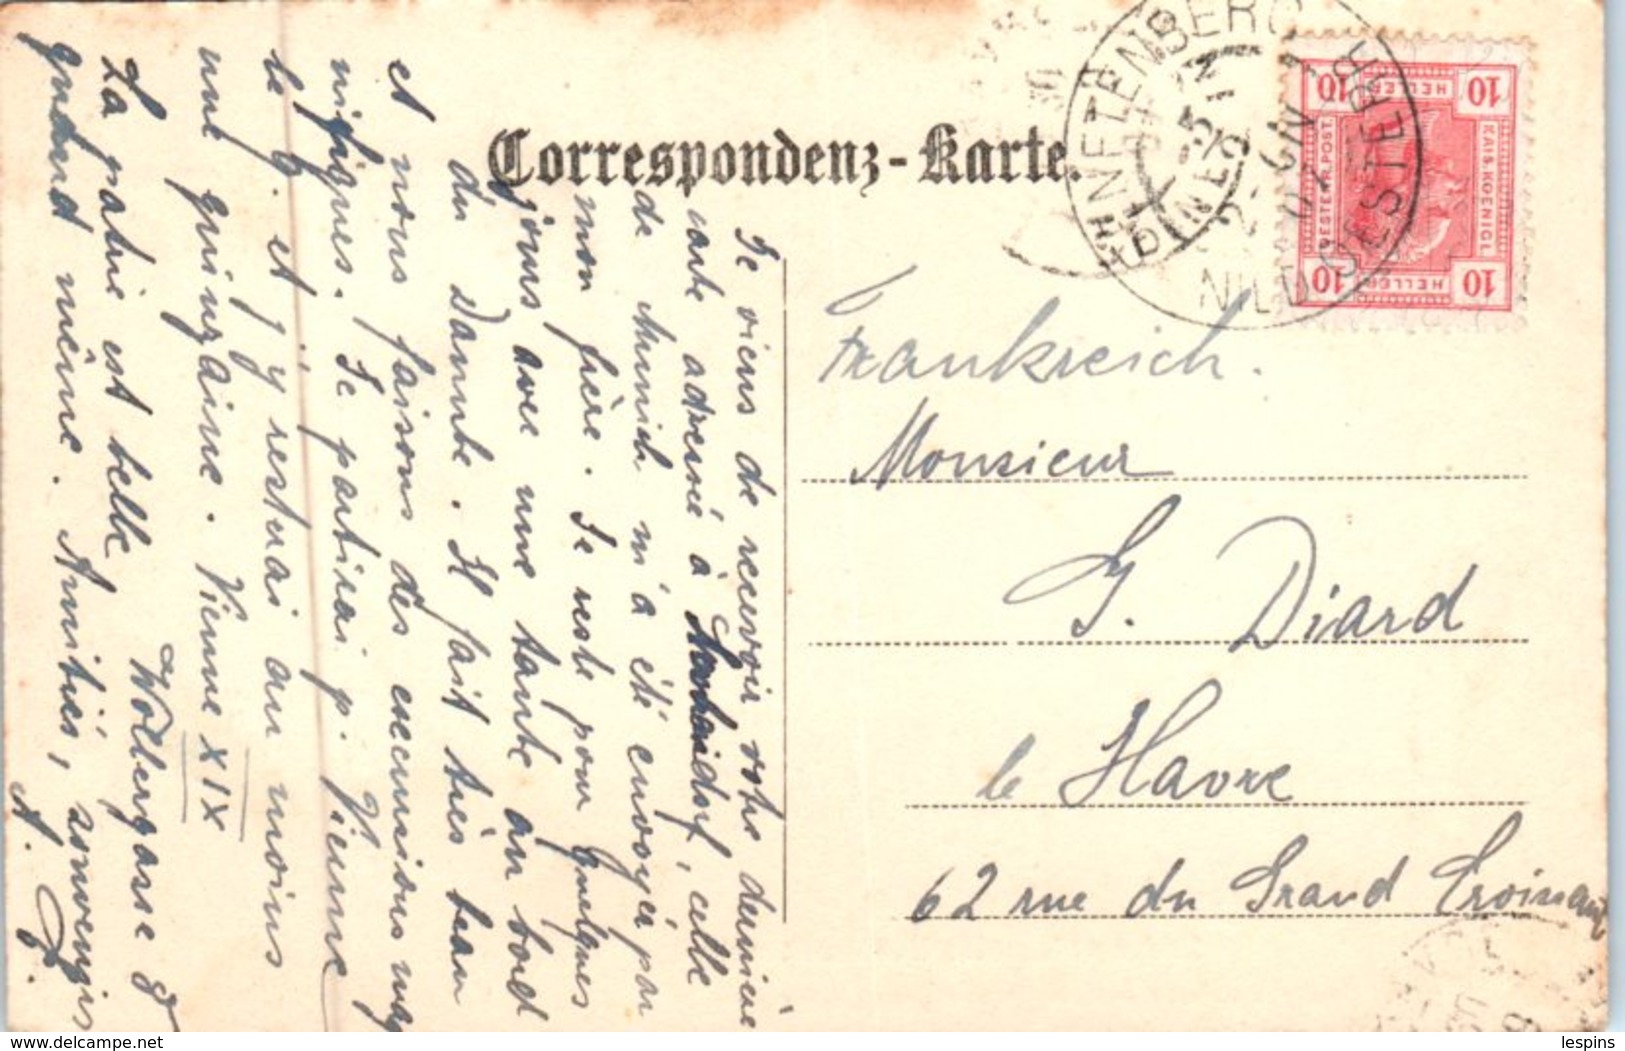 Correspondenz-Karte.
10 HELLER 10
KAIS. KOENIGL.
OESTERR. POST.
10 HELLER 10
HINTERBERG
Frankreich.
Monsieur
G. Diard
le Havre
62 rue du Grand Croissant
Je viens de recevoir votre dernière
carte adressée à celle
de Munich m'a été envoyée par
mon frère. Je reste pour quelques
jours avec une tante au bord
du Danube. Il fait très beau
et nous faisons des excursions mag
nifiques. Je partirai p. Vienne
le 6. et j'y restuai au moins
une quinzaine. Vienne XIX
La patrie est belle Wollergasse 8
quand même. Amitiés,
lespins